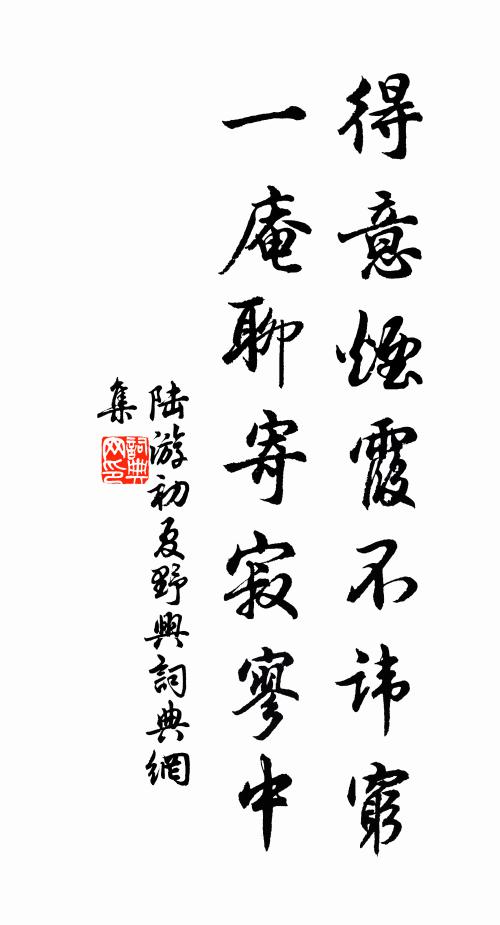 得意煙霞不諱窮
一庵聊寄寂寥中
陆游初夏野興詞典網
集
詞典网印